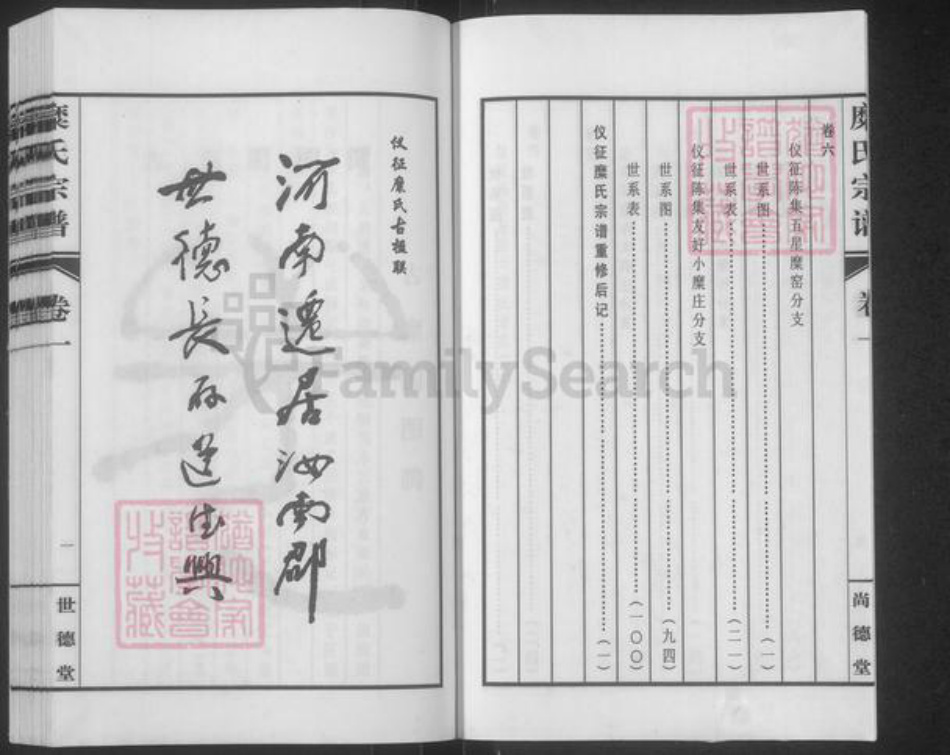 糜氏宗谱
卷一
尚德堂
卷六
仪征陈集五星糜窑分支
世系图(一)
世系表(二一)
仪征陈集友好小糜庄分支
世系图(九四)
世系表(一〇〇)
仪征糜氏宗谱重修后记(一)
仪征糜氏古楹联
河南遷居汝南郡
世德長存道生興
糜氏宗谱
卷一
一
世德堂
FamilySearch